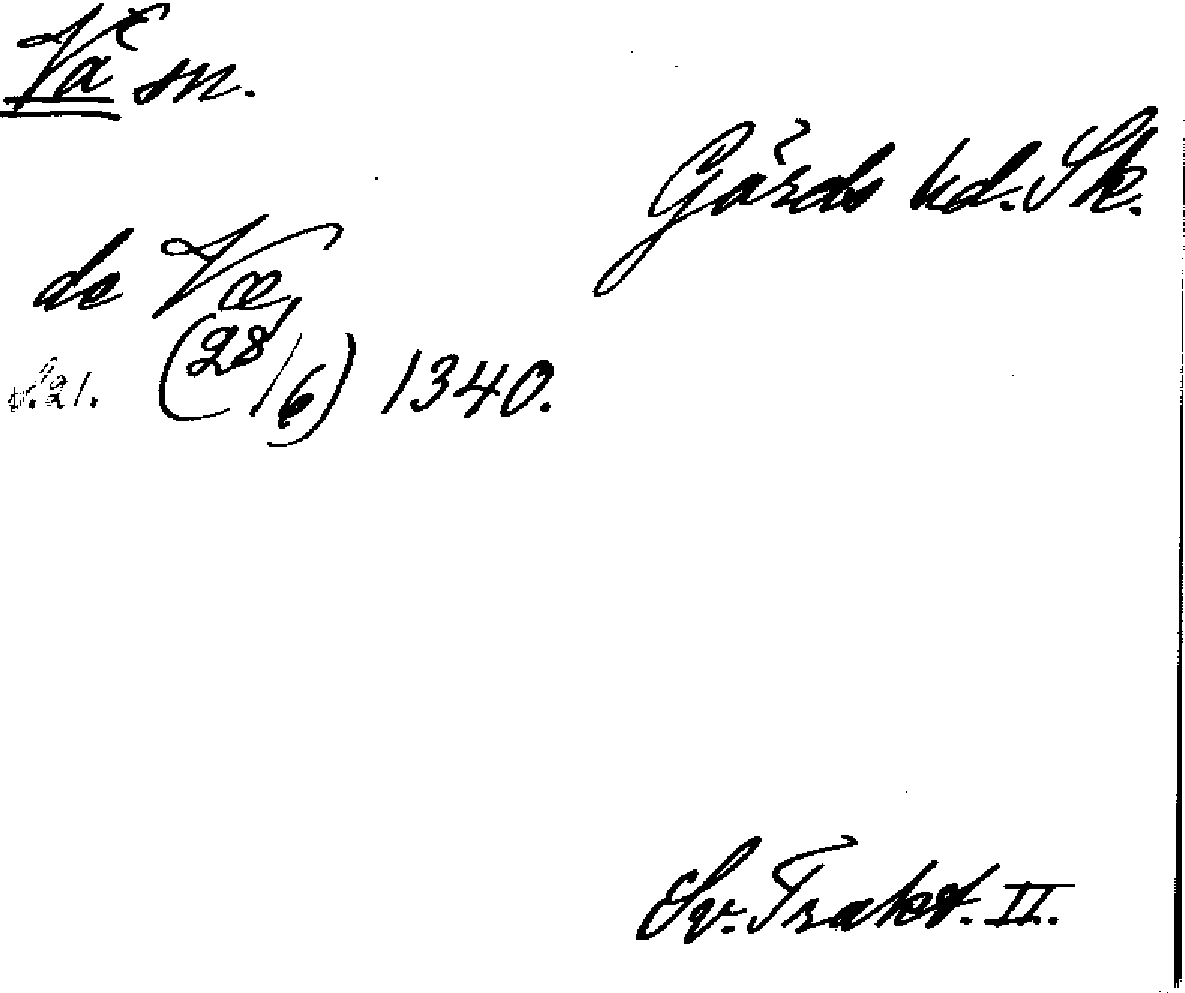 Vä sn.
Gärds hd. Sk.
de Væ,
s. 21. (28/6) 1340.
Sv. Trakt. II.